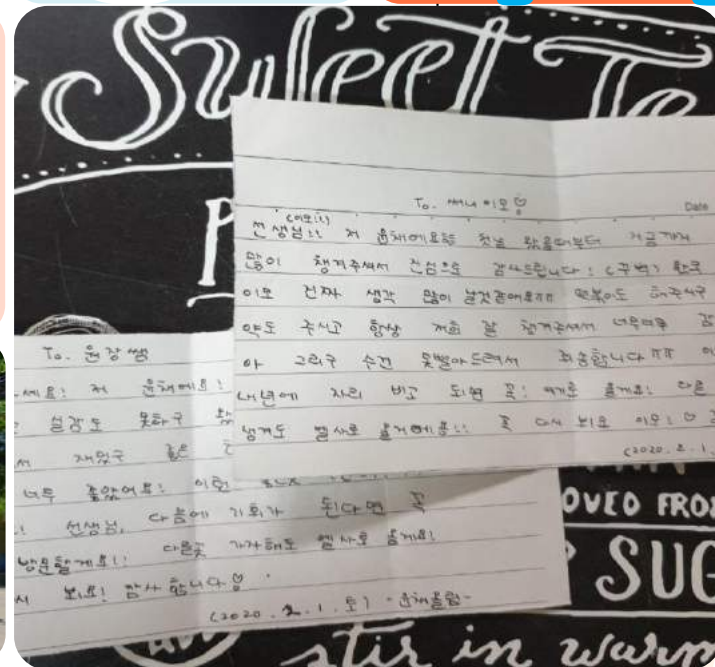 Sweet
To. 써니 이모♡
Date
(이모!!)
선생님!! 저 윤채에요 첫날 왔을때부터 지금까지
많이 챙겨주셔서 진심으로 감사드립니다! (꾸벅) 한국
이모 진짜 생각 많이 날것같아요ㅠㅠ 떡볶이도 해주시구
약도 주시고 항상 저희 잘 챙겨주셔서 너무너무
아 그리구 수건 못빨아드려서 죄송합니다ㅠㅠ
내년에 자리 비고 되면 꼭! 여기로 올게요! 다른
엘사로 올거에용!! 꼭 다시 봬요 이모! ♡
(2020. 2. 1.
To. 원장쌤
저 윤채에요!
실감도 못하구
재밌구 같은
너무 좋았어요! 이런
선생님, 다음에 기회가 된다면 꼭
방문할게요!! 다른곳 가자해도 엘사로 올게요!
봬요! 감사합니다♡
(2020. 2. 1. 토) -윤채올림-
OVED FROM
SUG
stir in warm